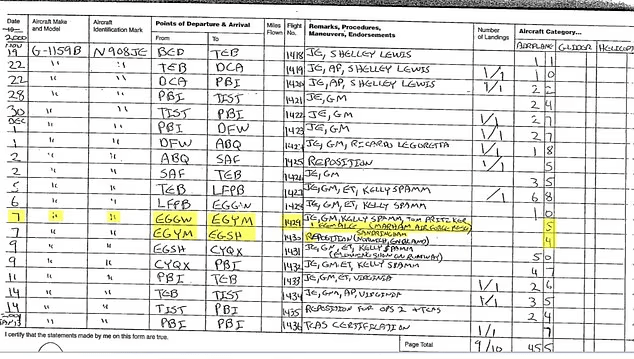 Date
2000
Aircraft Make and Model
Aircraft Identification Mark
Points of Departure & Arrival
From
To
Miles Flown
Flight No.
Remarks, Procedures, Maneuvers, Endorsements
Number of Landings
Aircraft Category...
AIRPLANE GLIDER HELICO
NOV
19 G-1159B N908JE BED TEB 1418 JE, SHELLEY LEWIS 1 1
22 " " TEB DCA 1419 JE, AP, SHELLEY LEWIS 1/1 1 0
22 " " DCA PBI 1420 JE, AP, SHELLEY LEWIS 1/1 2 2
28 " " PBI TIST 1421 JE, GM 2 4
30 " " TIST PBI 1422 JE, GM 1/1 2 7
DEC
1 " " PBI DFW 1423 JE, GM 1/1 2 7
1 " " DFW ABQ 1424 JE, GM, RICARDO LEGORETTA 1/1 1 8
2 " " ABQ SAF 1425 REPOSITION 1/1 5
2 " " SAF TEB 1426 JE, GM 3 5
5 " " TEB LFPB 1427 JE, GM, ET, KELLY SPAMM /1 6 8
6 " " LFPB EGGW 1428 JE, GM, ET, KELLY SPAMM 1 0
7 " " EGGW EGYM 1429 JE, GM, KELLY SPAMM, TOM PRITZKER
1 FEMALE (MARHAM AIR FORCE BASE) 5
SANDRINGHAM
7 " " EGYM EGSH 1430 REPOSITION (NORWICH, ENGLAND) 4
9 " " EGSH CYQX 1431 JE, GM, ET, KELLY SPAMM 5 0
(BLOWING SNOW ON RUNWAY)
9 " " CYQX PBI 1432 JE, GM, ET, KELLY SPAMM 4 7
11 " " PBI TEB 1433 JE, GM, ET, VIRGINIA 1/1 2 6
14 " " TEB TIST 1434 JE, GM, AP, VIRGINIA 1/1 3 5
14 " " TIST PBI 1435 REPOSITION FOR OPS 2 + TCAS 2 4
2001
JAN 13 " " PBI PBI 1436 TCAS CERTIFICATION 1/1 7
I certify that the statements made by me on this form are true.
Page Total 9/10 45 5